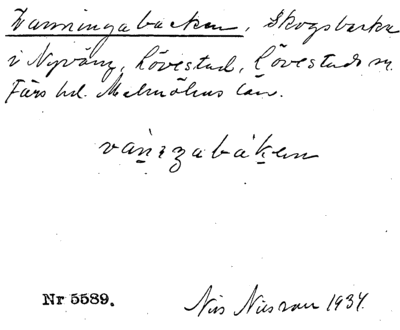 Vanningabacken, Skogsbacke
i Nyvång, Lövestad, Lövestads sn.
Färs hd. Malmöhus län.
vànıŋabáken
Nr 5589.
Nils Nilsson 1934.